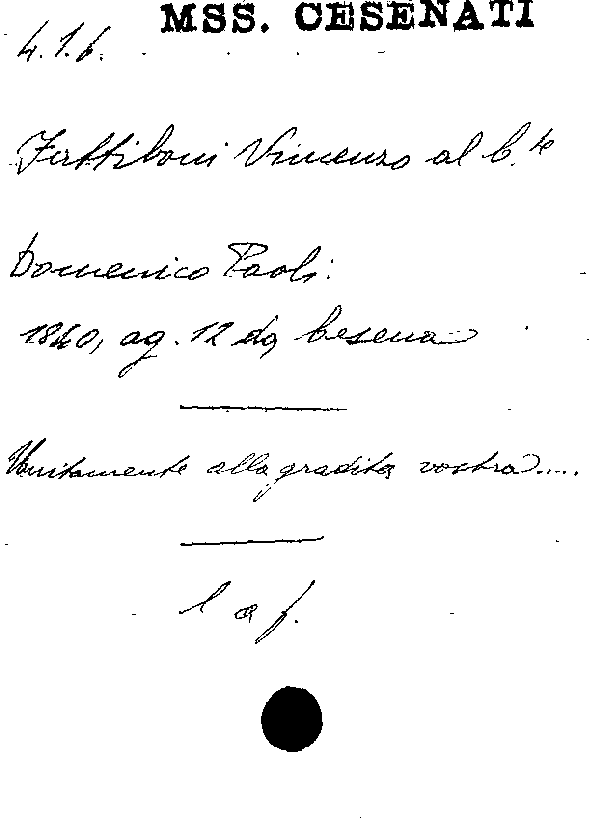 MSS. CESENATI
4.1.6.
Fattiboni Vincenzo al C.te
Domenico Paoli:
1840, ag. 12 da Cesena
Unitamente alla gradita vostra....
l a f.